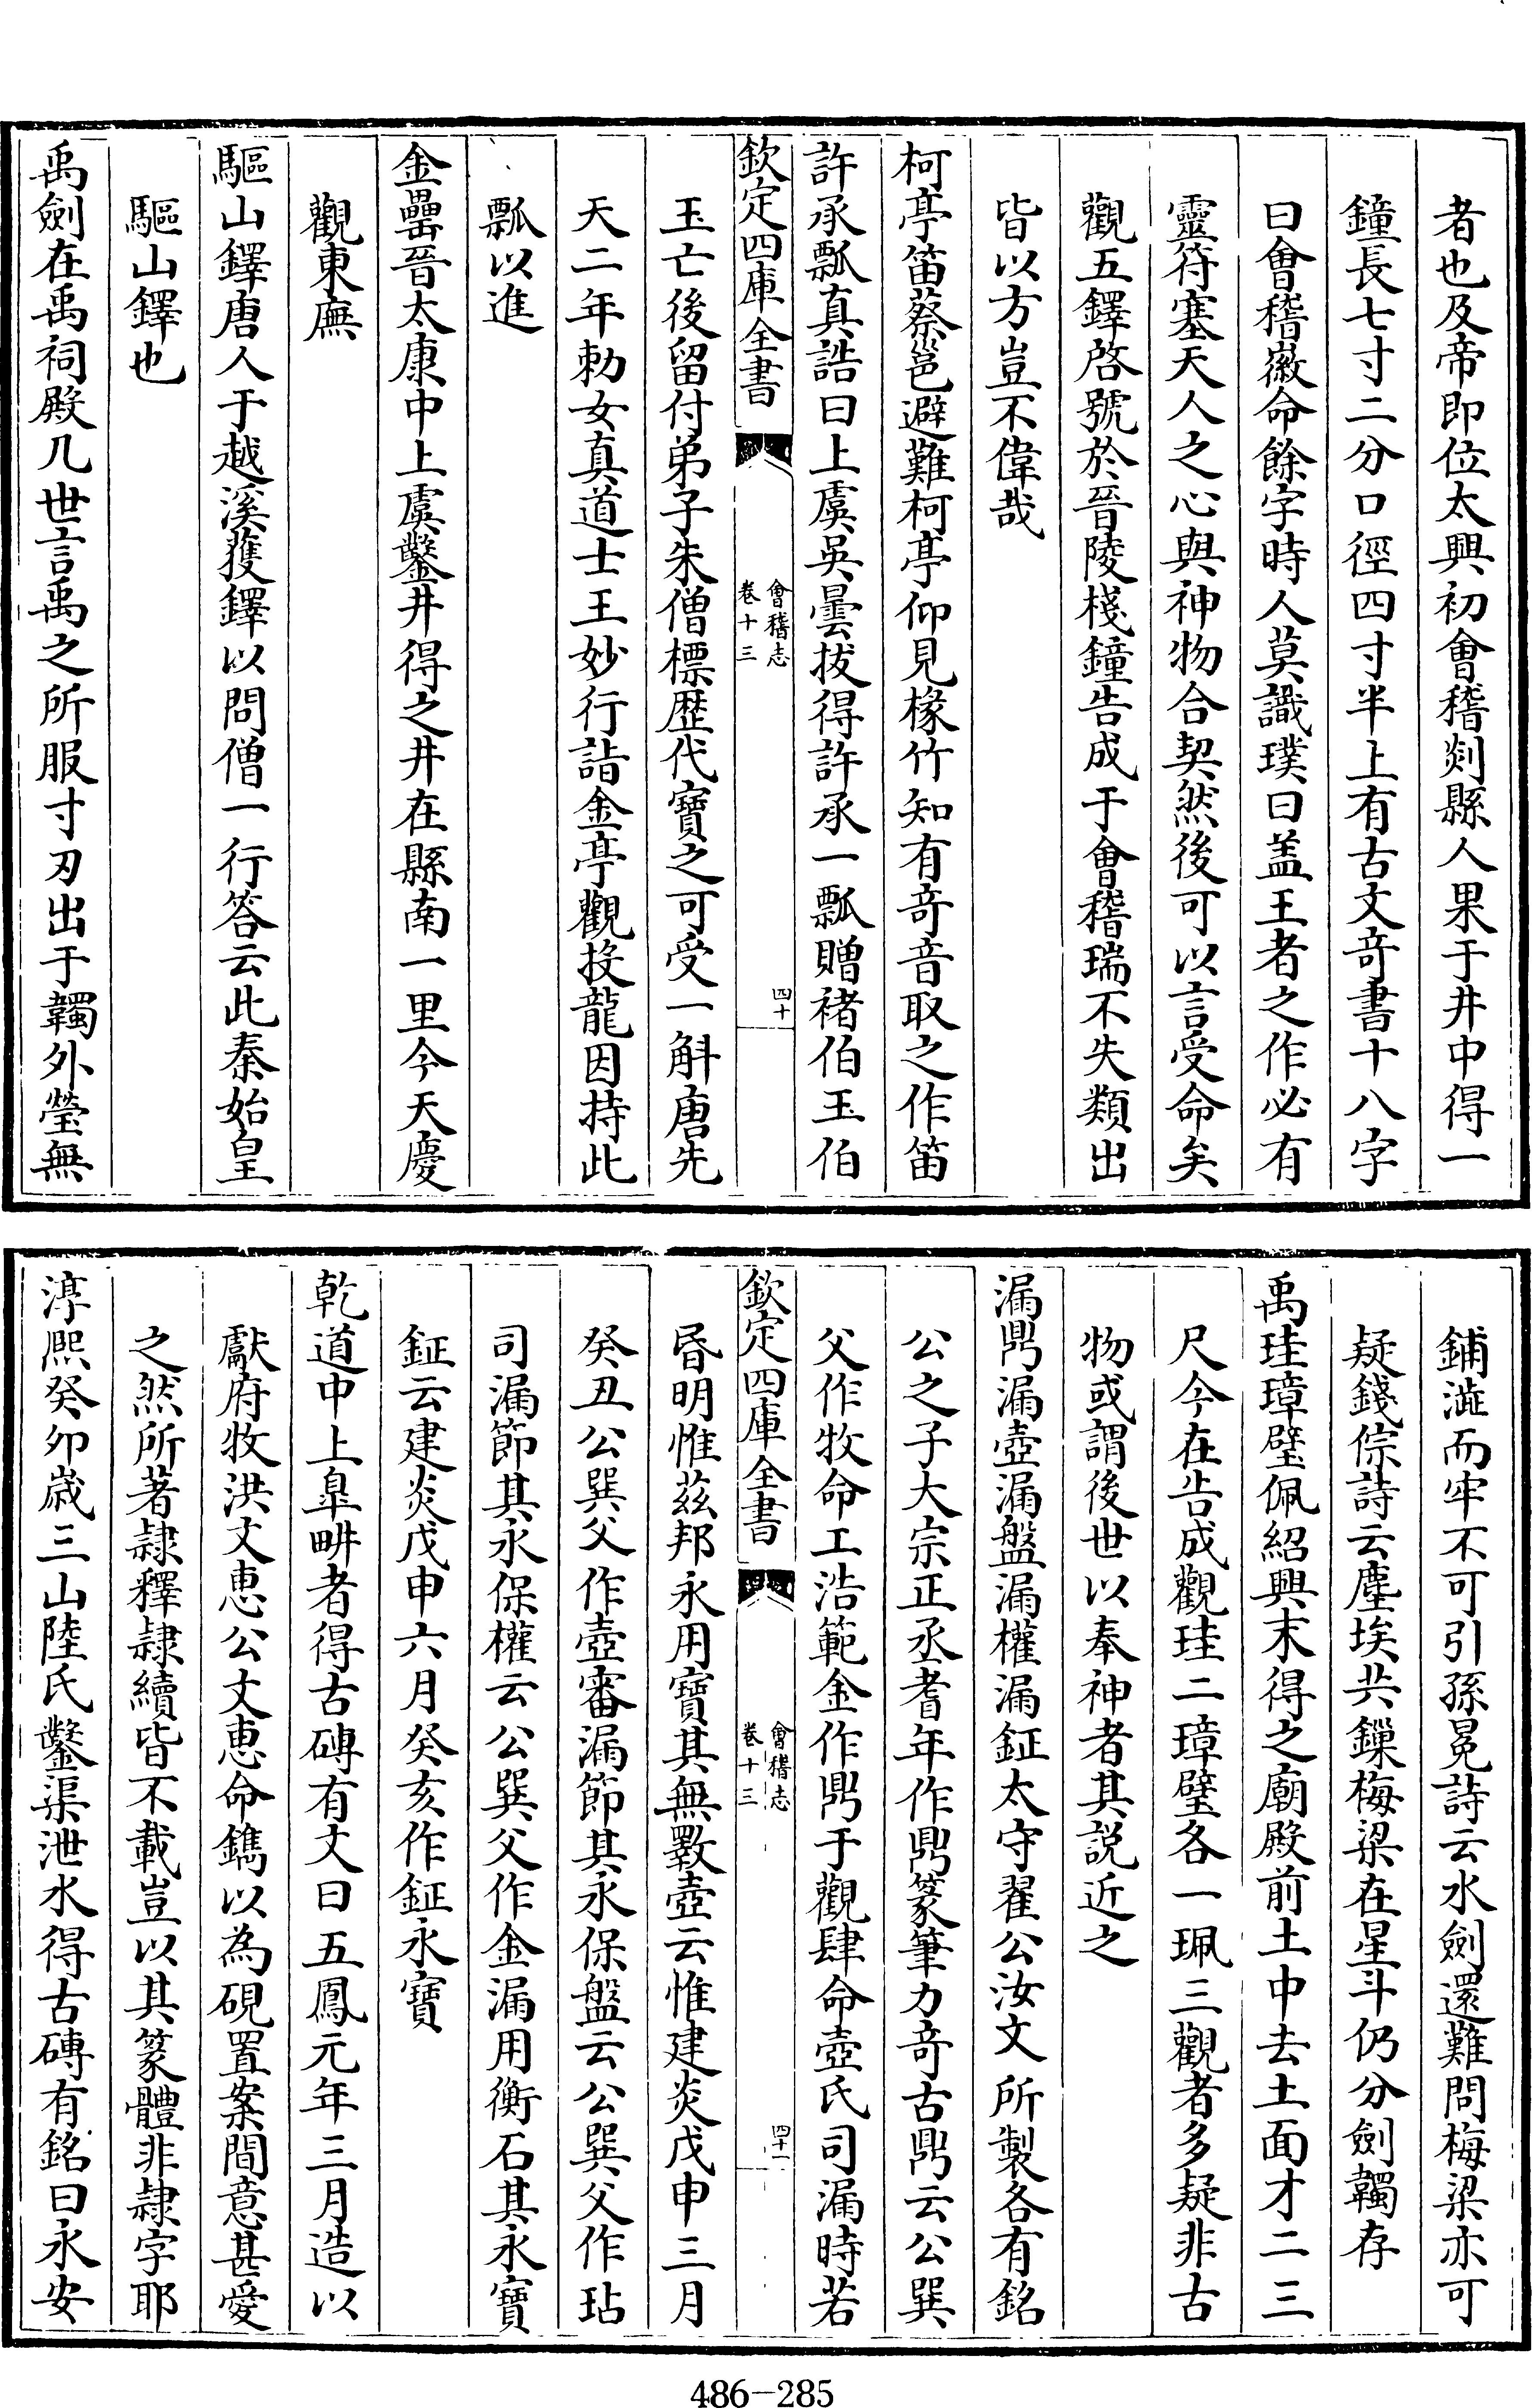 者也及帝即位太興初會稽剡縣人果于井中得一
鐘長七寸二分口徑四寸半上有古文竒書十八字
曰會稽徽命餘字時人莫識璞曰盖王者之作必有
靈符塞天人之心與神物合契然後可以言受命矣
觀五鐸啓號於晉陵棧鐘告成于會稽瑞不失類出
皆以方豈不偉哉
柯亭笛蔡邕避難柯亭仰見椽竹知有竒音取之作笛
許承瓢真誥曰上虞吳曇拔得許承一瓢贈褚伯玉伯
欽定四庫全書
會稽志
卷十三
四十
玉亡後留付弟子朱僧標歴代寶之可受一斛唐先
天二年勅女真道士王妙行詣金亭觀投龍因持此
瓢以進
金罍晉太康中上虞鑿井得之井在縣南一里今天慶
觀東廡
驅山鐸唐人于越溪獲鐸以問僧一行答云此秦始皇
驅山鐸也
禹劍在禹祠殿几世言禹之所服寸刃出于韣外瑩無
鋪澁而牢不可引孫冕詩云水劍還難問梅梁亦可
疑錢倧詩云塵埃共鏁梅梁在星斗仍分劍韣存
禹珪璋璧佩紹興末得之廟殿前土中去土面才二三
尺今在告成觀珪二璋璧各一珮三觀者多疑非古
物或謂後世以奉神者其説近之
漏鼎漏壺漏盤漏權漏鉦太守翟公汝文所製各有銘
公之子大宗正丞耆年作鼎篆筆力竒古鼎云公巽
父作牧命工浩範金作鼎于觀肆命壺氏司漏時若
欽定四庫全書
會稽志
卷十三
四十一
昏明惟兹邦永用寶其無斁壺云惟建炎戊申三月
癸丑公巽父作壺審漏節其永保盤云公巽父作玷
司漏節其永保權云公巽父作金漏用衡石其永寶
鉦云建炎戊申六月癸亥作鉦永寶
乾道中上臯畊者得古磚有文曰五鳳元年三月造以
獻府牧洪文惠公文惠命鐫以為硯置案間意甚愛
之然所著隷釋隷續皆不載豈以其篆體非隷字耶
淳熙癸卯嵗三山陸氏鑿渠泄水得古磚有銘曰永安
486-285